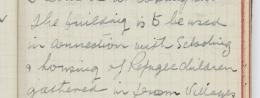 The building is to be used
in connection with Schooling
& housing of Refugee Children
gathered in from Villages